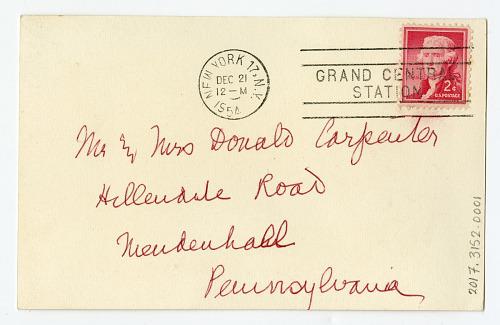 NEW YORK 17, N.Y.
DEC 21
12-M
1954
GRAND CENTRAL
STATION
2¢
U.S. POSTAGE
Mr & Mrs Donald Carpenter
Hillendale Road
Mendenhall
Pennsylvania
2017.3152.0001